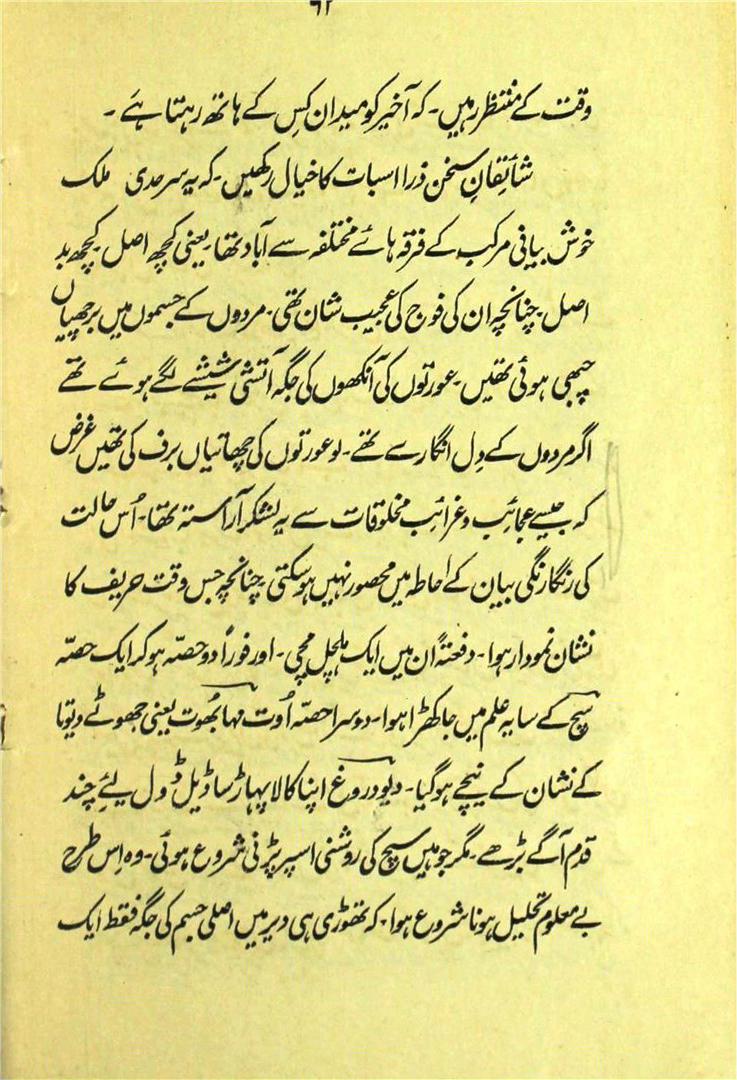 ۶۲
وقت کے منتظر رہیں۔ کہ آخیر کو میدان کس کے ہاتھ رہتا ہے۔
شائقانِ سخن ذرا اسبات کا خیال رکھیں۔ کہ یہ سرحدی ملک
خوش بیانی مرکب کے فرقہ ہائے مختلفہ سے آباد تھا۔ یعنی کچھ اصل۔ کچھ بد
اصل۔ چنانچہ ان کی فوج کی عجیب شان تھی۔ مردوں کے جسموں میں برچھیاں
چبھی ہوئی تھیں۔ عورتوں کی آنکھوں کی جگہ آتشی شیشے لگے ہوئے تھے
اگر مردوں کے دِل انگار سے تھے۔ تو عورتوں کی چھاتیاں برف کی تھیں غرض
کہ جیسے عجائب و غرائب مخلوقات سے یہ لشکر آراستہ تھا۔ اُس حالت
کی رنگارنگی بیان کے احاطہ میں محصور نہیں ہوسکتی۔ چنانچہ جس وقت حریف کا
نشان نمودار ہوا۔ دفعتہً ان میں ایک ہلچل مچی۔ اور فوراً دو حصّہ ہو کر ایک حصّہ
سچ کے سایہ علم میں جا کھڑا ہوا۔ دوسرا حصّہ اُوت مہا بھُوت یعنی جھوٹے دیوتا
کے نشان کے نیچے ہو گیا۔ دیو دروغ اپنا کالا پہاڑ سا ڈیل ڈول لیئے چند
قدم آگے بڑھے۔ مگر جوہیں سچ کی روشنی اسپر پڑنی شروع ہوئی۔ وہ اِس طرح
بے معلوم تحلیل ہونا شروع ہوا۔ کہ تھوڑی ہی دیر میں اصلی جسم کی جگہ فقط ایک